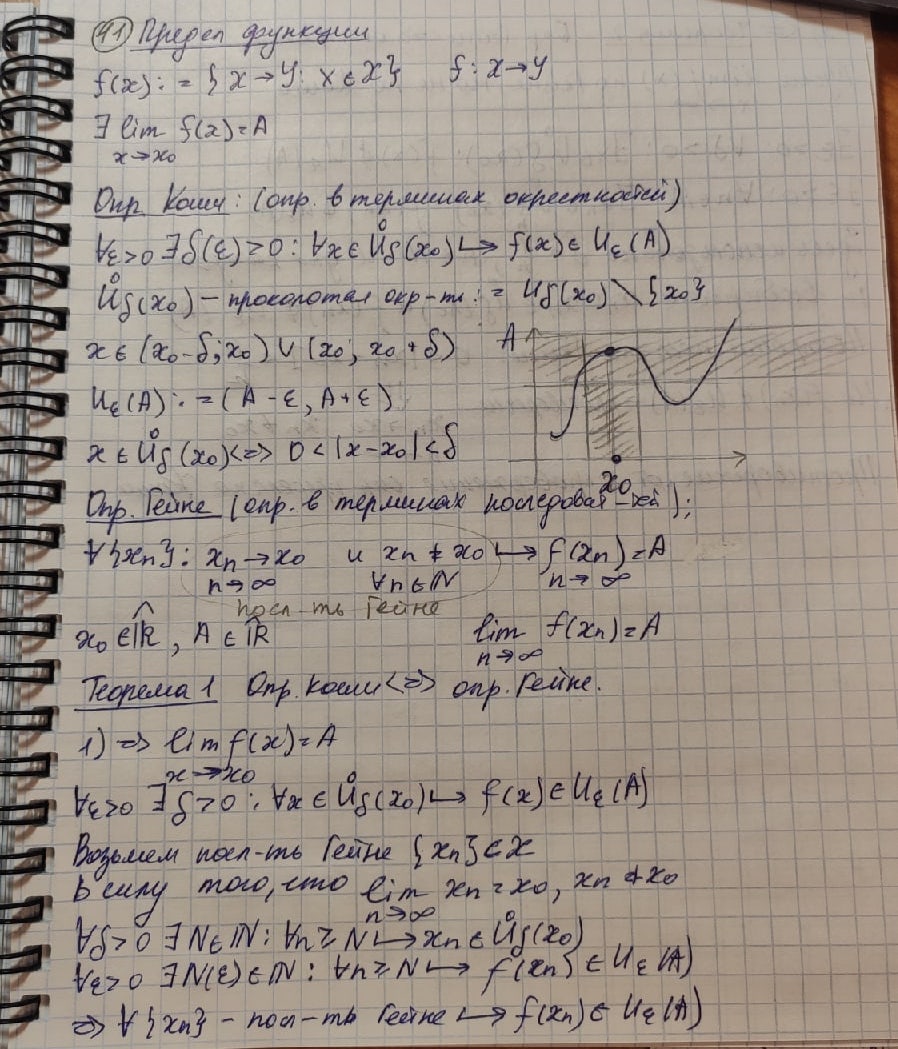 41 Предел функции
f(x) := {x → y : x ∈ X}   f: X → Y
∃ lim f(x) = A
x → x₀
Опр Коши: (опр. в терминах окрестностей)
∀ε>0 ∃δ(ε)>0 : ∀x ∈ Ůδ(x₀) ↦ f(x) ∈ Uε(A)
Ůδ(x₀) – проколотая окр-ть := Uδ(x₀) \ {x₀}
x ∈ (x₀-δ; x₀) ∪ (x₀; x₀+δ)
A
Uε(A) := (A-ε, A+ε)
x ∈ Ůδ(x₀) <=> 0 < |x-x₀| < δ
x₀
Опр. Гейне (опр. в терминах последоват-тей):
∀{xn}: xn → x₀ и xn ≠ x₀ ↦ f(xn) = A
n→∞   ∀n∈ℕ   n→∞
посл-ть Гейне
x₀ ∈ ℝ̂, A ∈ ℝ̂   lim f(xn) = A
n→∞
Теорема 1 Опр. Коши <=> опр. Гейне.
1) => lim f(x) = A
x→x₀
∀ε>0 ∃δ>0 : ∀x ∈ Ůδ(x₀) ↦ f(x) ∈ Uε(A)
Возьмем посл-ть Гейне {xn} ⊂ X
В силу того, что lim xn = x₀, xn ≠ x₀
n→∞
∀δ>0 ∃N∈ℕ: ∀n ≥ N ↦ xn ∈ Ůδ(x₀)
∀ε>0 ∃N(ε)∈ℕ : ∀n ≥ N ↦ f(xn) ∈ Uε(A)
=> ∀{xn} – посл-ть Гейне ↦ f(xn) ∈ Uε(A)